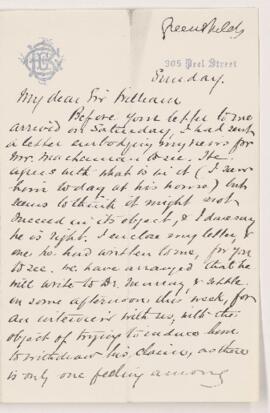 Greenshields
305 Peel Street
Sunday.
My dear Sir William
Before your letter to me
arrived on Saturday, I had sent
a letter embodying my views for
Mr. to see. He
agrees with what is in it (I saw
him today at his house) but
seems to think it might not
succeed in its object, & I dare say
he is right. I enclose my letter, &
one he had written to me, for you
to see. We have arranged that he
will write to Dr. Murray, & settle
on some afternoon this week, for
an interview with us, with the
object of trying to induce him
to withdraw his claim, as there
is only one feeling among